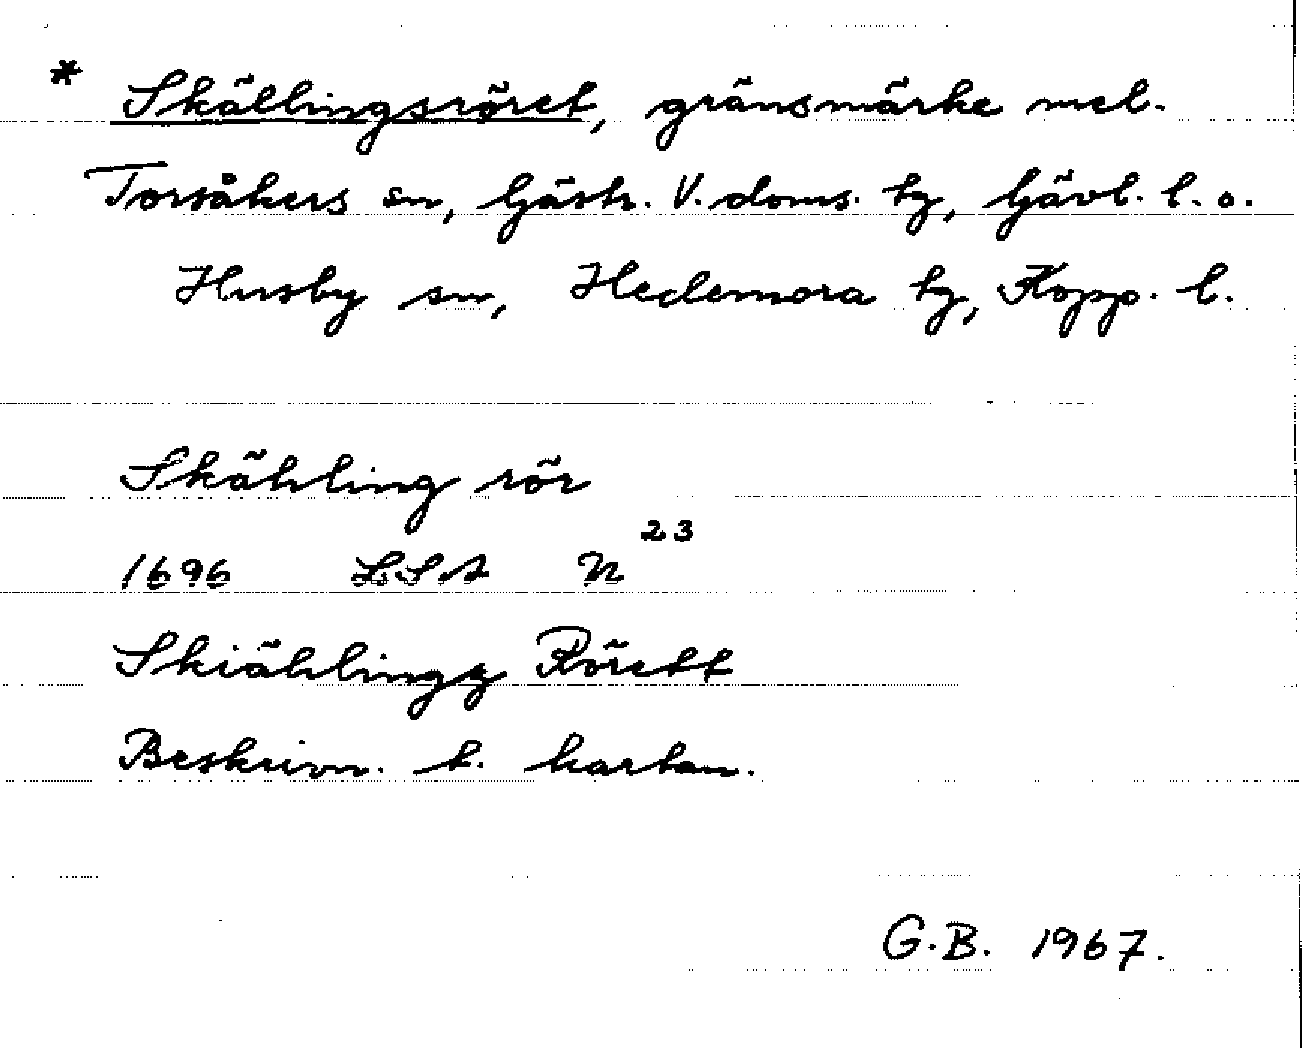 * Skällingsröret, gränsmärke mel.
Torsåkers sn, Gästr. V. doms. hg, Gävl. l. o.
Husby sn, Hedemora tg, Kopp. l.
Skähling rör
1696 LSA N 23
Skiählingz Rörett
Beskrivn. t. kartan.
G.B. 1967.